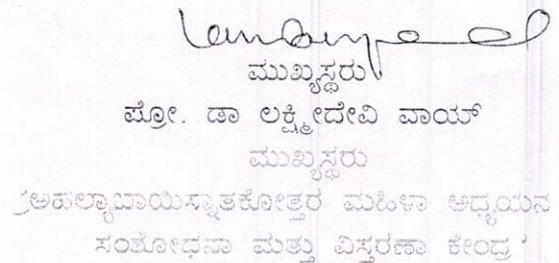 ಮುಖ್ಯಸ್ಥರು
ಪ್ರೋ. ಡಾ ಲಕ್ಷ್ಮೀದೇವಿ ವಾಯ್
ಮುಖ್ಯಸ್ಥರು
'ಅಹಲ್ಯಾಬಾಯಿಸ್ನಾತಕೋತ್ತರ ಮಹಿಳಾ ಅಧ್ಯಯನ
ಸಂಶೋಧನಾ ಮತ್ತು ವಿಸ್ತರಣಾ ಕೇಂದ್ರ'